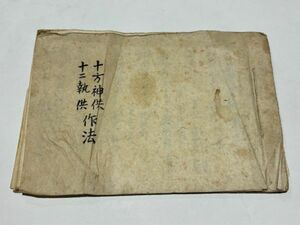 十方神供
十二執供
作法